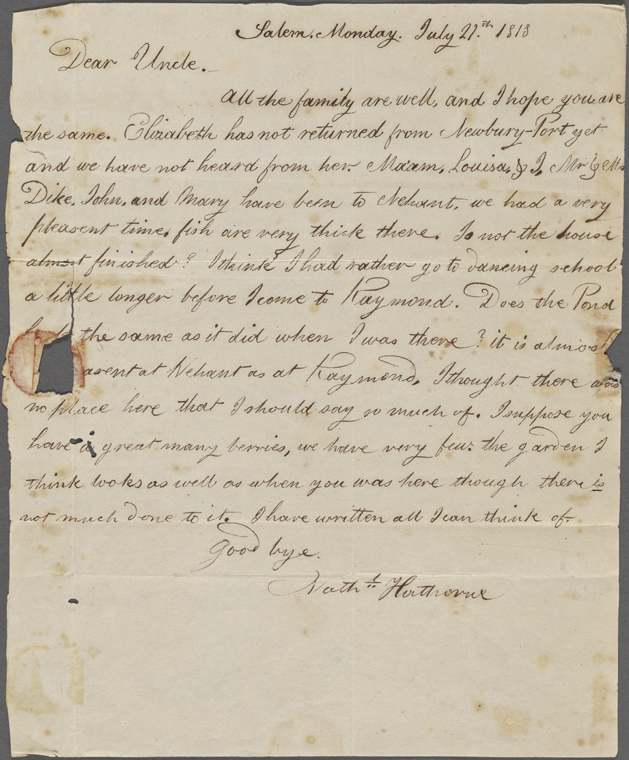 Salem. Monday. July 21.st 1818
Dear Uncle.
All the family are well, and I hope you are
the same. Elizabeth has not returned from Newbury-Port yet
and we have not heard from her. Ma'am, Louisa, & I, Mr & Mrs
Dike, John, and Mary have been to Nehant, we had a very
pleasent time, fish are very thick there. Is not the house
almost finished? I think I had rather go to dancing school
a little longer before I come to Raymond. Does the Pond
the same as it did when I was there? it is almost
asent at Nehant as at Raymond. I thought there was
no place here that I should say so much of. I suppose you
have a great many berries, we have very few. the garden I
think looks as well as when you was here though there is
not much done to it. I have written all I can think of.
Good bye.
Nathl. Hathorne